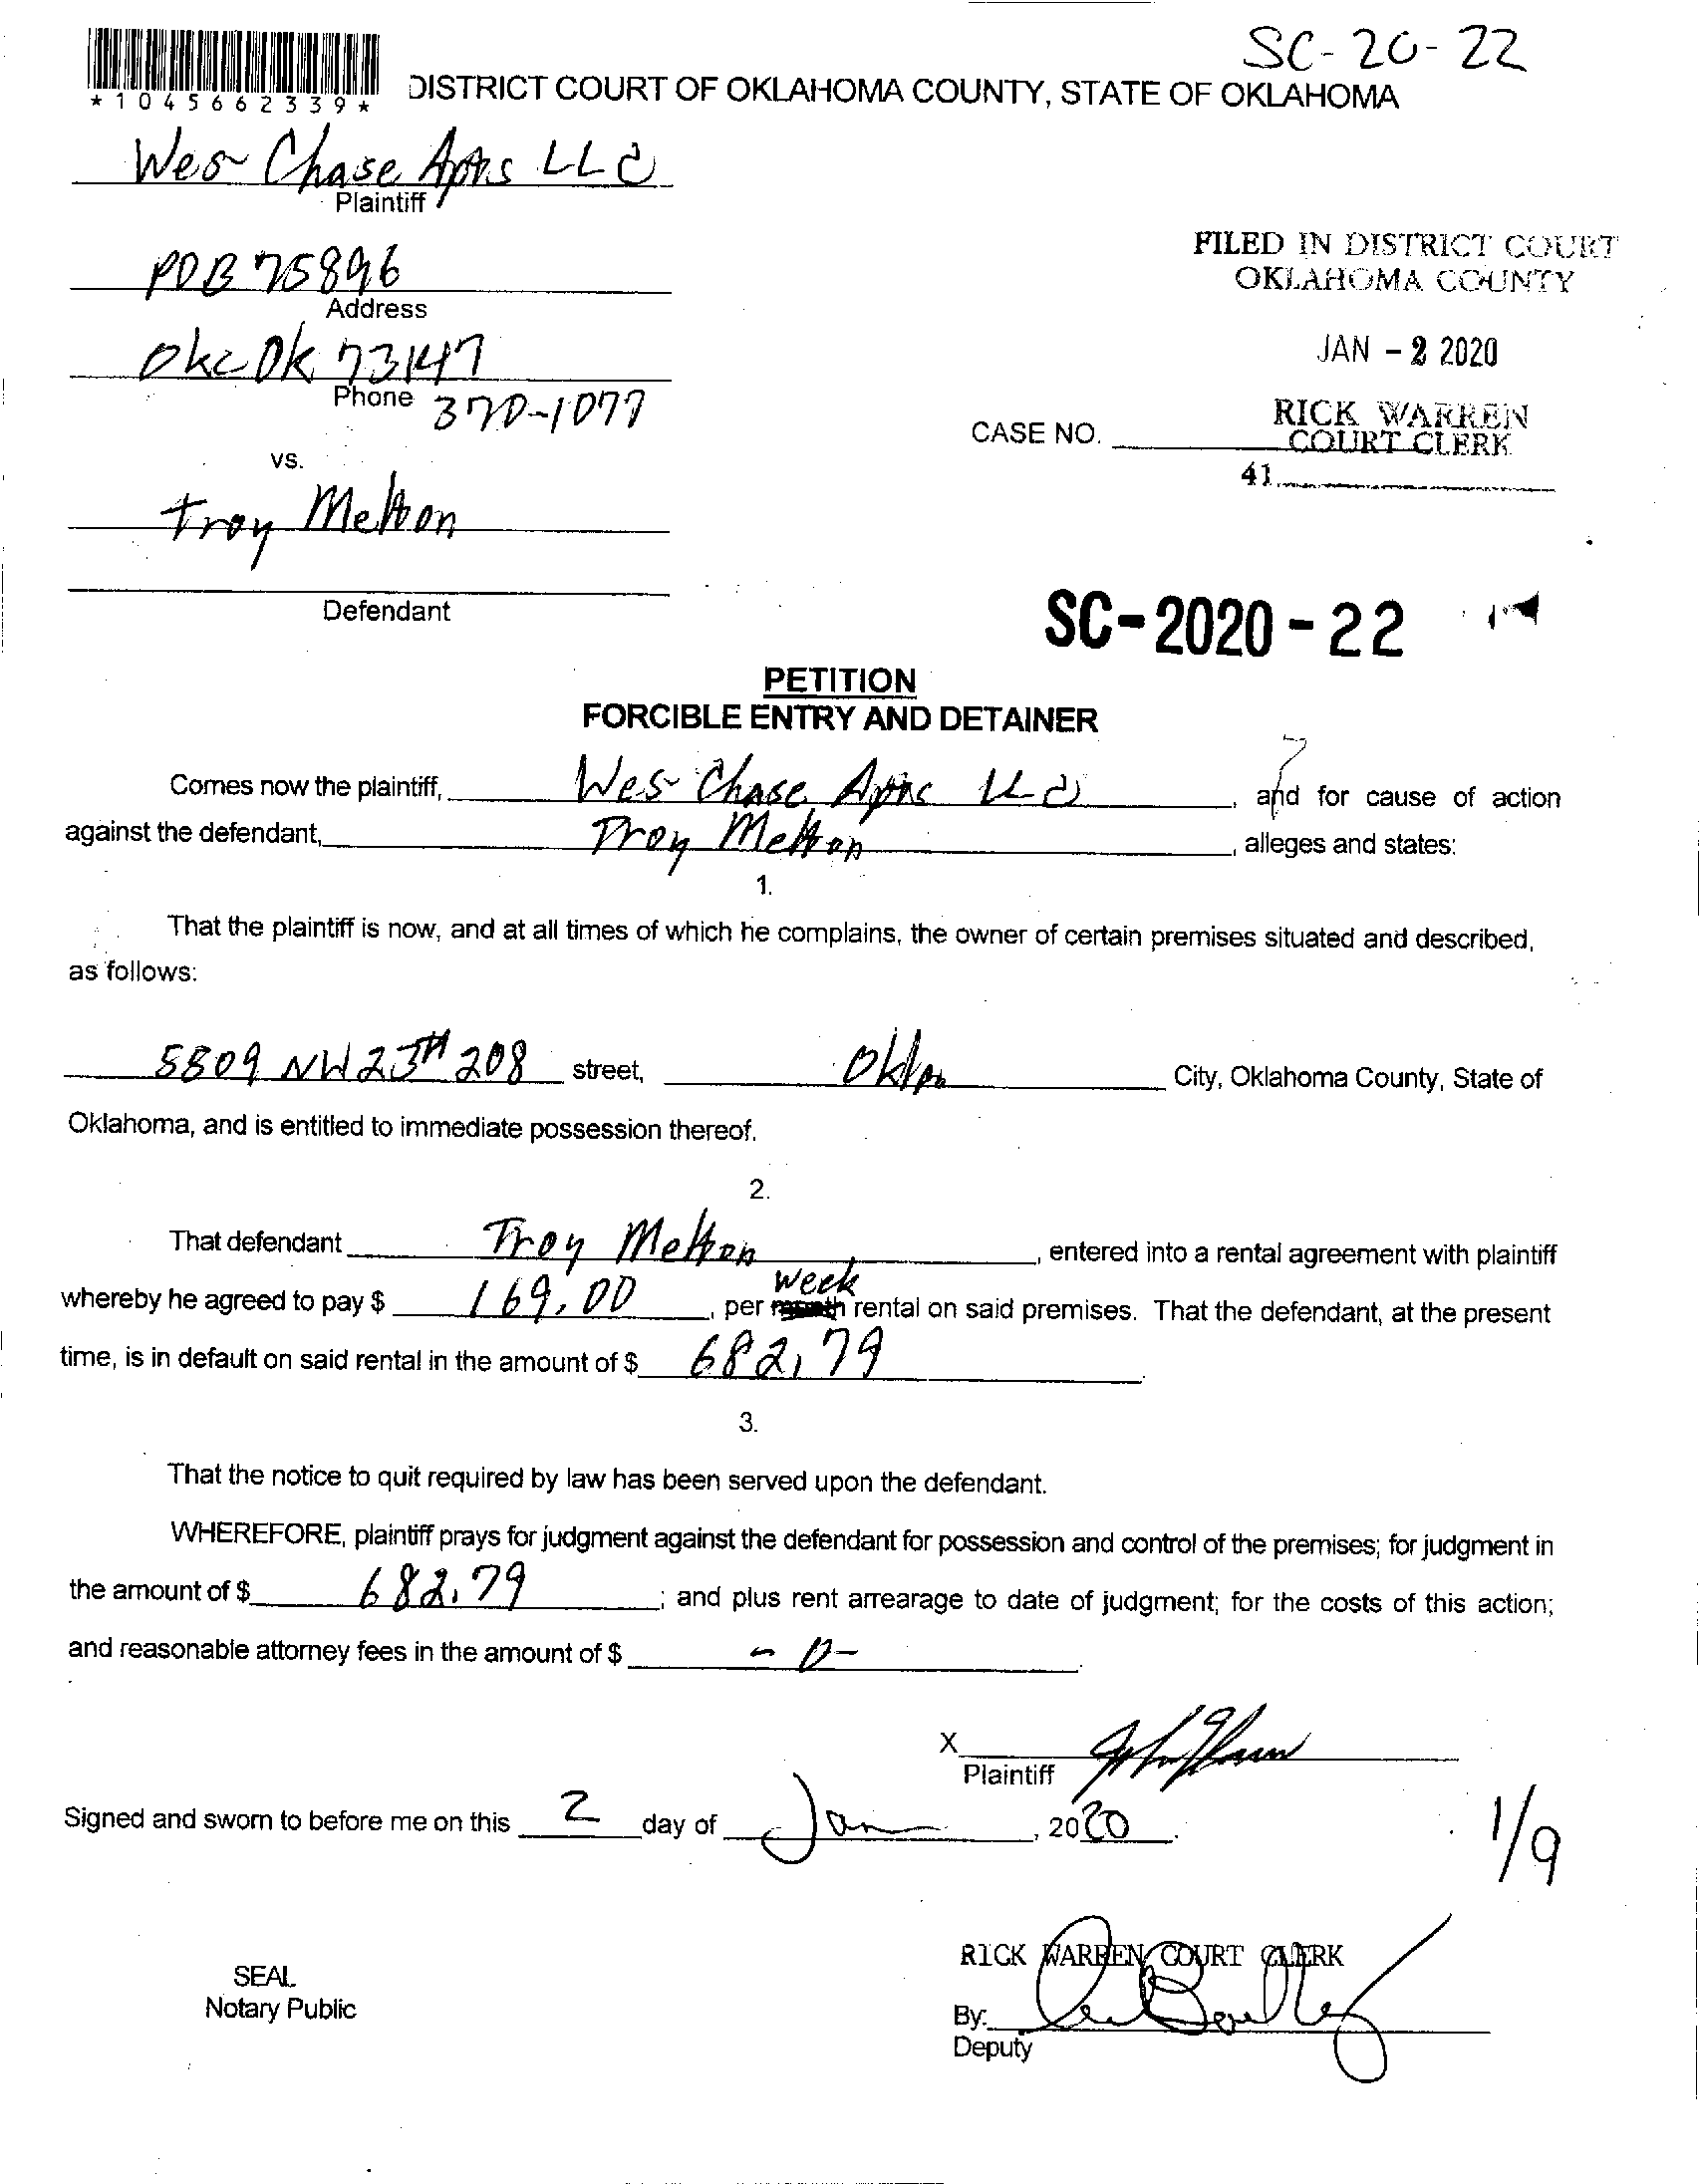 SC-20-22
*1045662339*
DISTRICT COURT OF OKLAHOMA COUNTY, STATE OF OKLAHOMA
Wes Chase Apts LLC
Plaintiff
POB 75896
Address
Okc Ok 73147
Phone 370-1077
vs.
Troy Melton
Defendant
FILED IN DISTRICT COURT
OKLAHOMA COUNTY
JAN - 2 2020
RICK WARREN
COURT CLERK
CASE NO.
41
SC-2020-22
PETITION
FORCIBLE ENTRY AND DETAINER
Comes now the plaintiff, Wes Chase Apts LLC, and for cause of action
against the defendant, Troy Melton, alleges and states:
1.
That the plaintiff is now, and at all times of which he complains, the owner of certain premises situated and described,
as follows:
5809 NW 23TH 208 street, City, Oklahoma County, State of
Oklahoma, and is entitled to immediate possession thereof.
2.
That defendant Troy Melton, entered into a rental agreement with plaintiff
week
whereby he agreed to pay $ 169.00, per month rental on said premises. That the defendant, at the present
time, is in default on said rental in the amount of $ 682,79
3.
That the notice to quit required by law has been served upon the defendant.
WHEREFORE, plaintiff prays for judgment against the defendant for possession and control of the premises; for judgment in
the amount of $ 682.79; and plus rent arrearage to date of judgment; for the costs of this action;
and reasonable attorney fees in the amount of $ -0-
X
Plaintiff
Signed and sworn to before me on this 2 day of Jan, 2020.
1/9
RICK WARREN COURT CLERK
SEAL
Notary Public
By:
Deputy